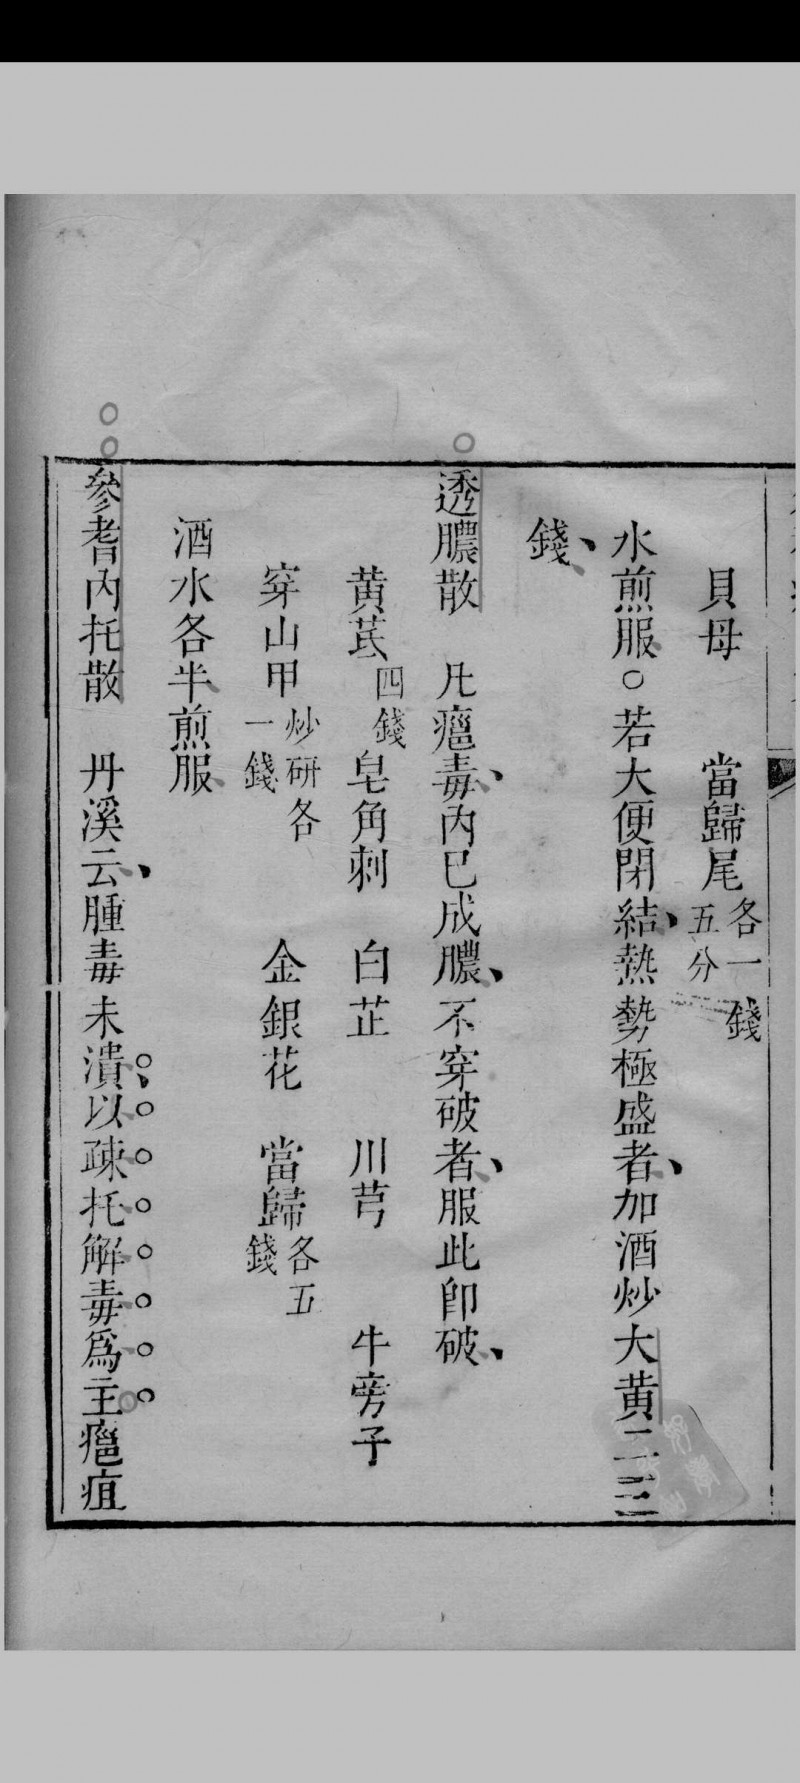 貝母　當歸尾各一錢五分
水煎服○若大便閉結熱勢極盛者加酒炒大黄二三
錢
透膿散　凡癰毒内已成膿不穿破者服此即破
黄芪四錢　皂角刺　白芷　川芎　牛旁子
穿山甲炒研各一錢　金銀花　當歸各五錢
酒水各半煎服
參耆内托散　丹溪云腫毒未潰以疎托解毒爲主癰疽